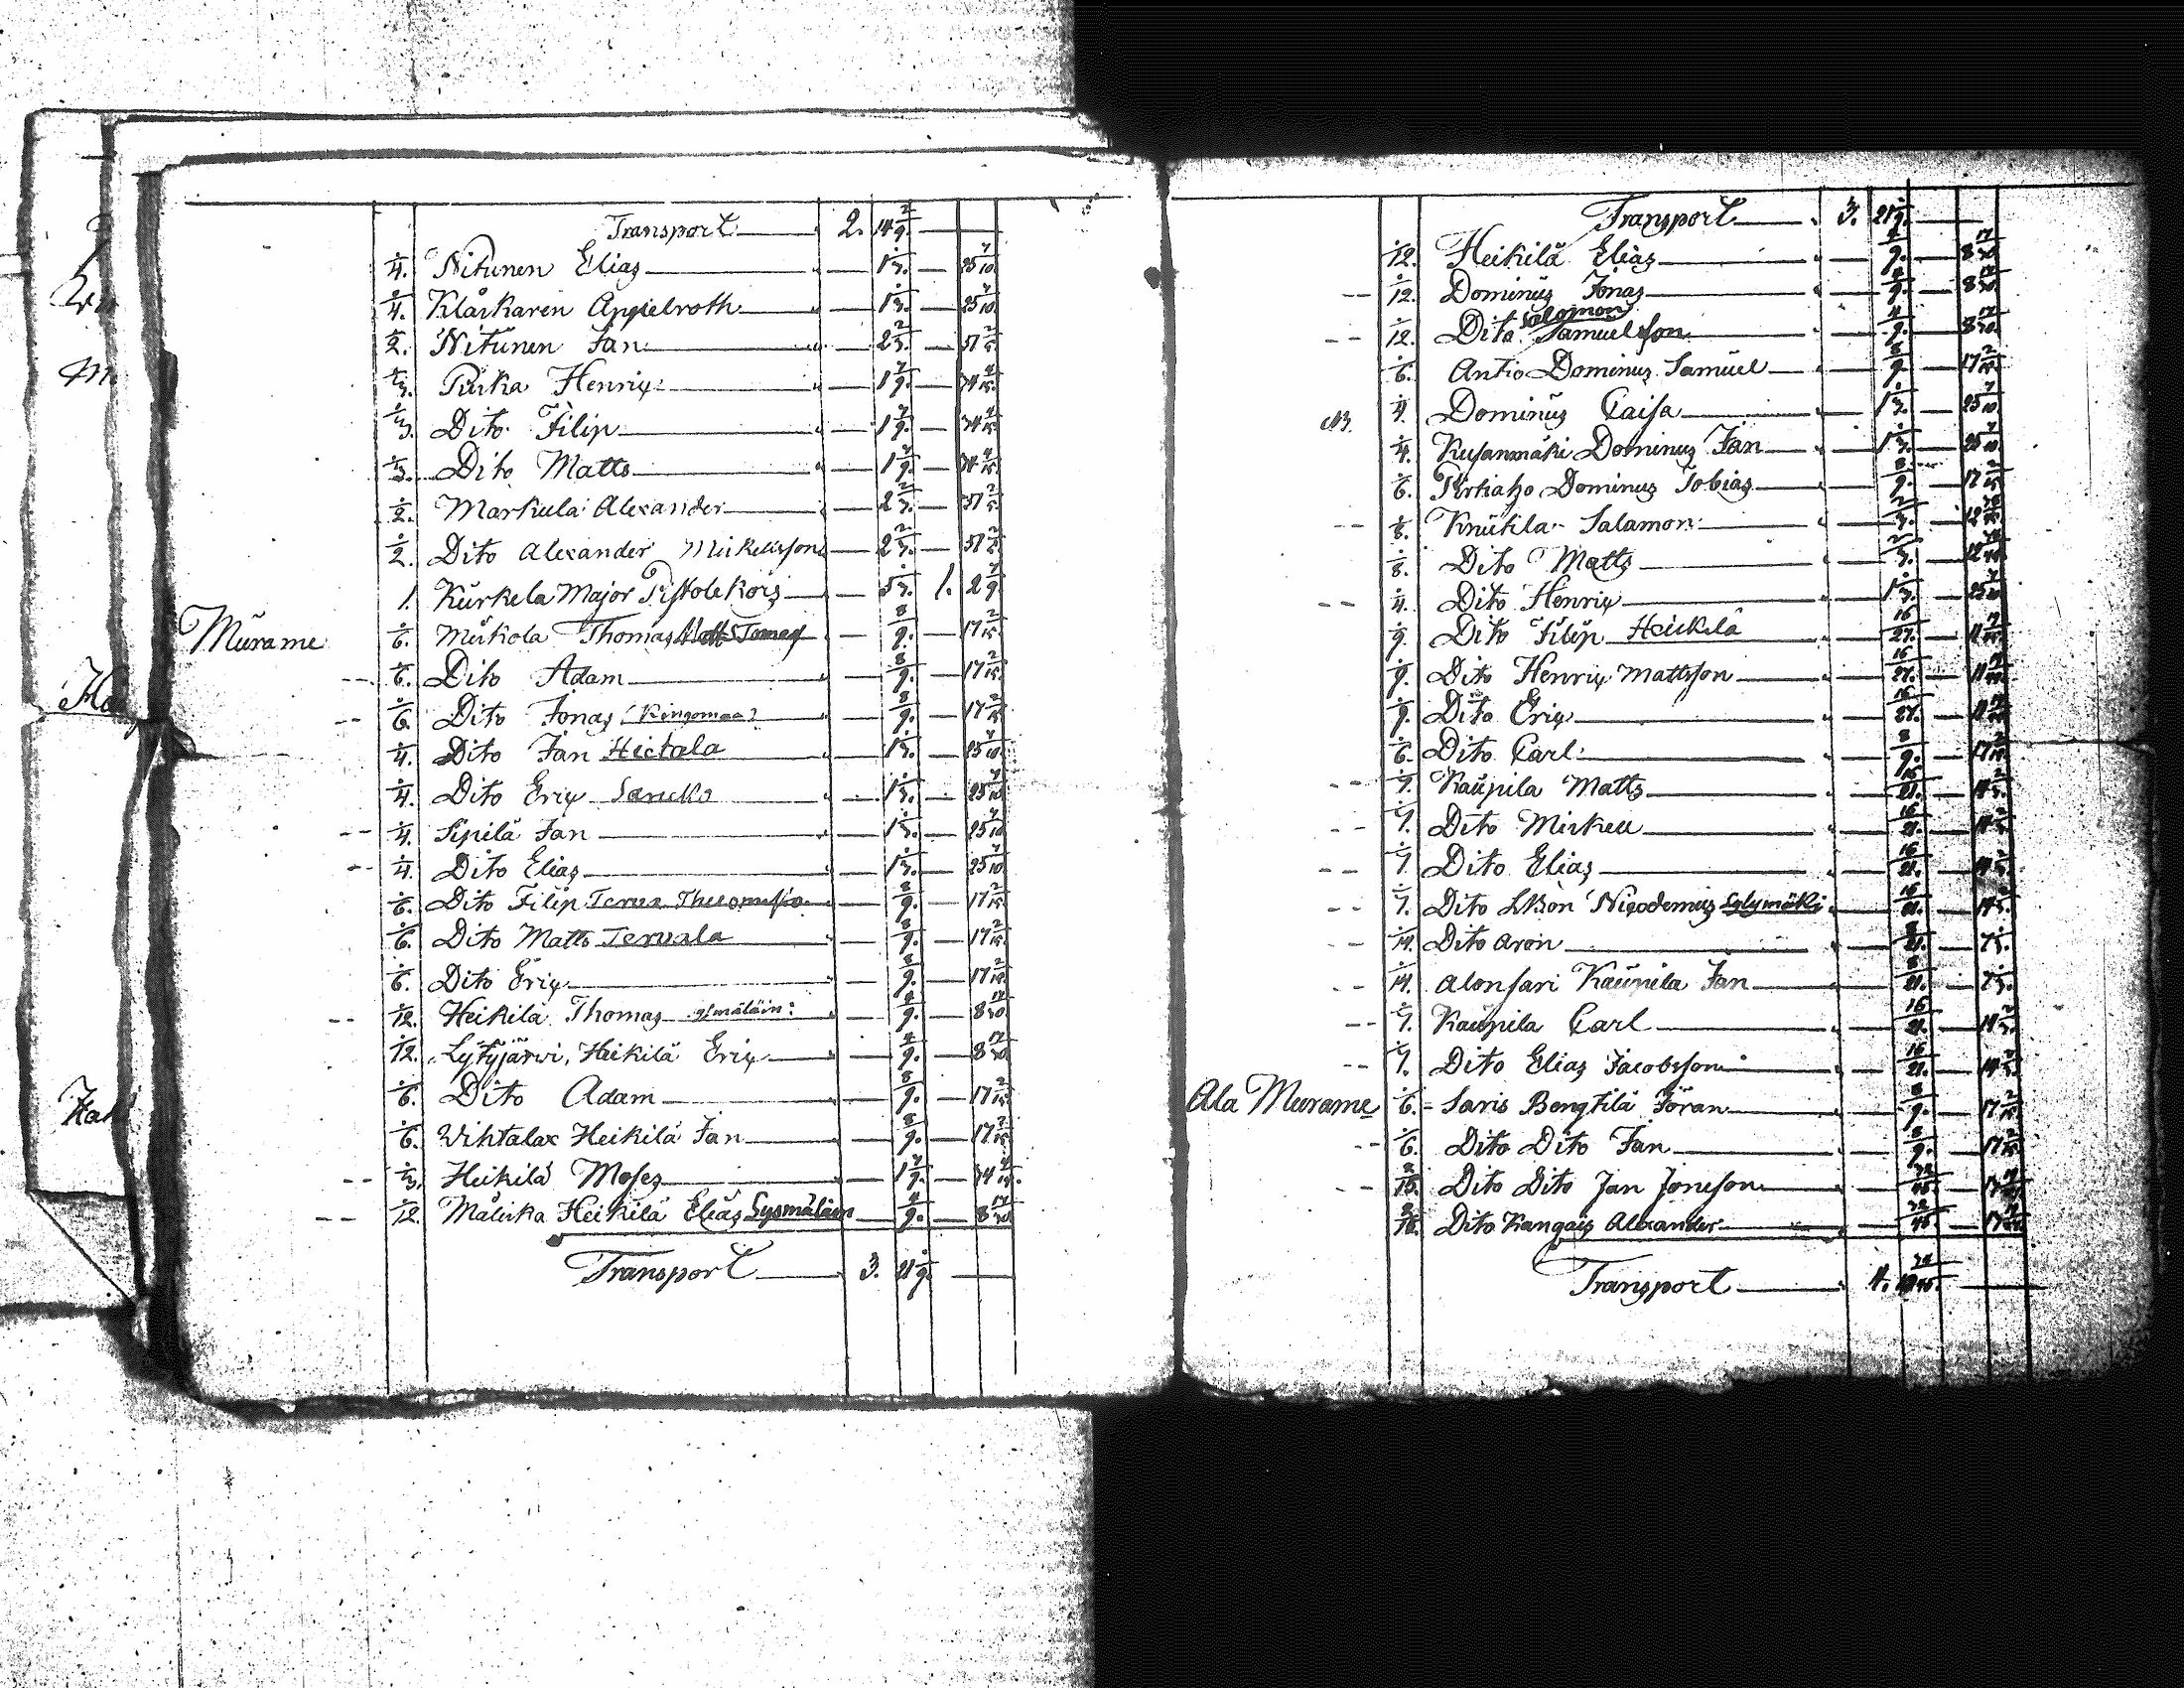 Transport 2. 14 2/9
1/4. Nitunen Elias 1 1/3. 25 7/10
1/4. Klåckaren Appelroth 1 1/3. 25 7/10
1/2. Nitunen Jan 2 2/3. 51 2/5
1/3. Pirka Henrix 1 7/9. 34 4/15
1/3. Dito Filip 1 7/9. 34 4/15
1/3. Dito Matts 1 7/9. 34 4/15
1/2. Markula Alexander 2 2/3. 51 2/5
1/2. Dito Alexander Mickelsson 2 2/3. 51 2/5
1. Kurkela Major Pistolekors 5 1/3. 1. 2 7/9
Murame 1/6. Mickola Thomas 8/9. 17 2/15
-- 1/6. Dito Adam 8/9. 17 2/15
-- 1/6. Dito Jonas (Kingomaa) 8/9. 17 2/15
1/4. Dito Jan Hietala 1 1/3. 25 7/10
1/4. Dito Erix Jancko 1 1/3. 25 7/10
-- 1/4. Sipilä Jan 1 1/3. 25 7/10
-- 1/4. Dito Elias 1 1/3. 25 7/10
1/6. Dito Filip 8/9. 17 2/15
1/6. Dito Matts Tervala 8/9. 17 2/15
1/6. Dito Erix 8/9. 17 2/15
-- 1/12. Heikilä Thomas 4/9. 8 17/30
1/12. Lytyjärvi, Heikilä Erix 4/9. 8 17/30
1/6. Dito Adam 8/9. 17 2/15
1/6. Wihtalax Heikilä Jan 8/9. 17 2/15
-- 1/3. Heikilä Moses 1 7/9. 34 4/15.
-- 1/12. Måliska Heikilä Elias Sysmäläin 4/9. 8 17/30
Transport 3. 21 1/9.
Transport 3. 21 1/9.
1/12. Heikilä Elias 4/9. 8 17/30
-- 1/12. Dominus Jonas 4/9. 8 17/30
Salomon
-- 1/12. Dito Samuelsson 4/9. 8 17/30
1/6. Antio Dominus Samuel 8/9. 17 2/15
NB. 1/4. Dominus Caisa 1 1/3. 25 7/10
1/4. Kusanmäki Dominus Jan 1 1/3. 25 7/10
1/6. Pirtiaho Dominus Tobias 8/9. 17 2/15
-- 1/8. Knutila Salamon 2/3.
1/8. Dito Matts 2/3.
-- 1/4. Dito Henrix 1 1/3. 25 7/10
1/9. Dito Filip Heickilä 16/27.
1/9. Dito Henrix Mattsson 16/27.
1/9. Dito Erix 16/27.
1/6. Dito Carl 8/9. 17 2/15
-- 1/7. Kaupila Matts 16/21.
-- 1/7. Dito Mickell 16/21.
-- 1/7. Dito Elias 16/21.
-- 1/7. Dito Nicodemus Sylymäki 16/21.
-- 1/14. Dito Aron 8/21. 7 1/3.
-- 1/14. Alonsari Kaupila Jan 8/21. 7 1/3.
-- 1/7. Kaupila Carl 16/21.
-- 1/7. Dito Elias Jacobsson 16/21.
Ala Murame 1/6. Saris Bengtilä Jöran 8/9. 17 2/15
-- 1/6. Dito Dito Jan 8/9. 17 2/15
-- 2/15. Dito Dito Jan Jonesson 32/45.
2/15. Dito Kangais Alexander 32/45.
Transport 4.